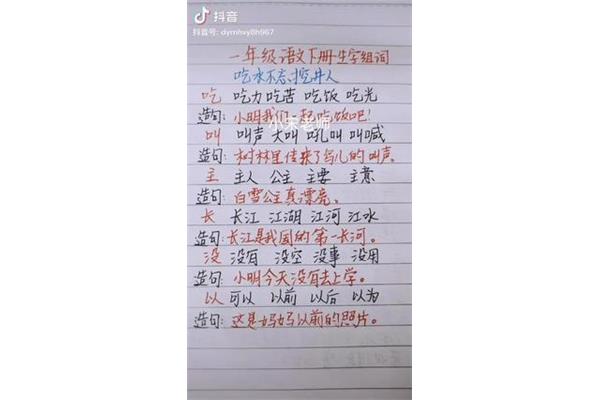 抖音
抖音号: dymhvy8h967
一年级语文下册生字组词
吃水不忘挖井人
吃 吃力 吃苦 吃饭 吃光
造句: 小明我们一起吃饭吧!
小宋老师
叫 叫声 大叫 吼叫 叫喊
造句: 树林里传来了鸟儿的叫声。
主 主人 公主 主要 主意
造句: 白雪公主真漂亮。
长 长江 江湖 江河 江水
造句: 长江是我国的第一长河。
没 没有 没空 没事 没用
造句: 小明今天没有去上学。
以 可以 以前 以后 以为
造句: 这是妈妈以前的照片。